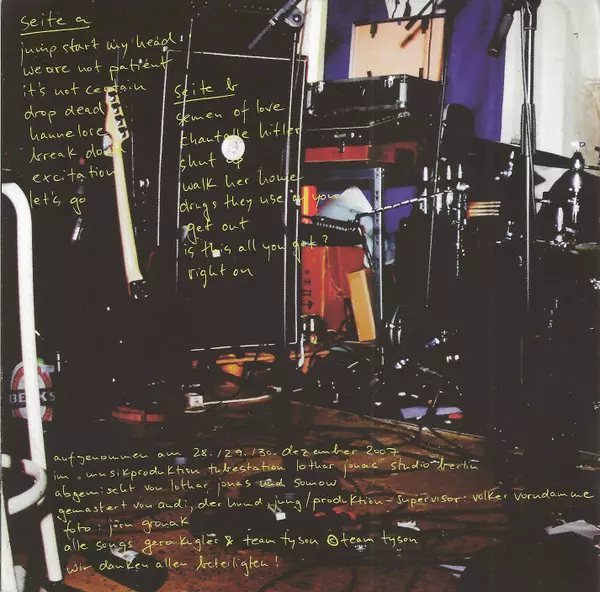 seite a
jump start my head!
we are not patient
it's not certain
drop dead
hannelore
break down
excitation
let's go
seite b
semen of love
chantalle hitler
shut up
walk her home
drugs they use on you
get out
is this all you got?
right on
BECK'S
aufgenommen am 28./29./30. dezember 2007
im "musikproduktion tubestation lothar jonas" studio-berlin
abgemischt von lothar jonas und somow
gemastert von andi, der hund, jung/produktion-supervisor: volker vorndamme
foto: jörn
alle songs gero kugler & team tyson © team tyson
wir danken allen beteiligten!